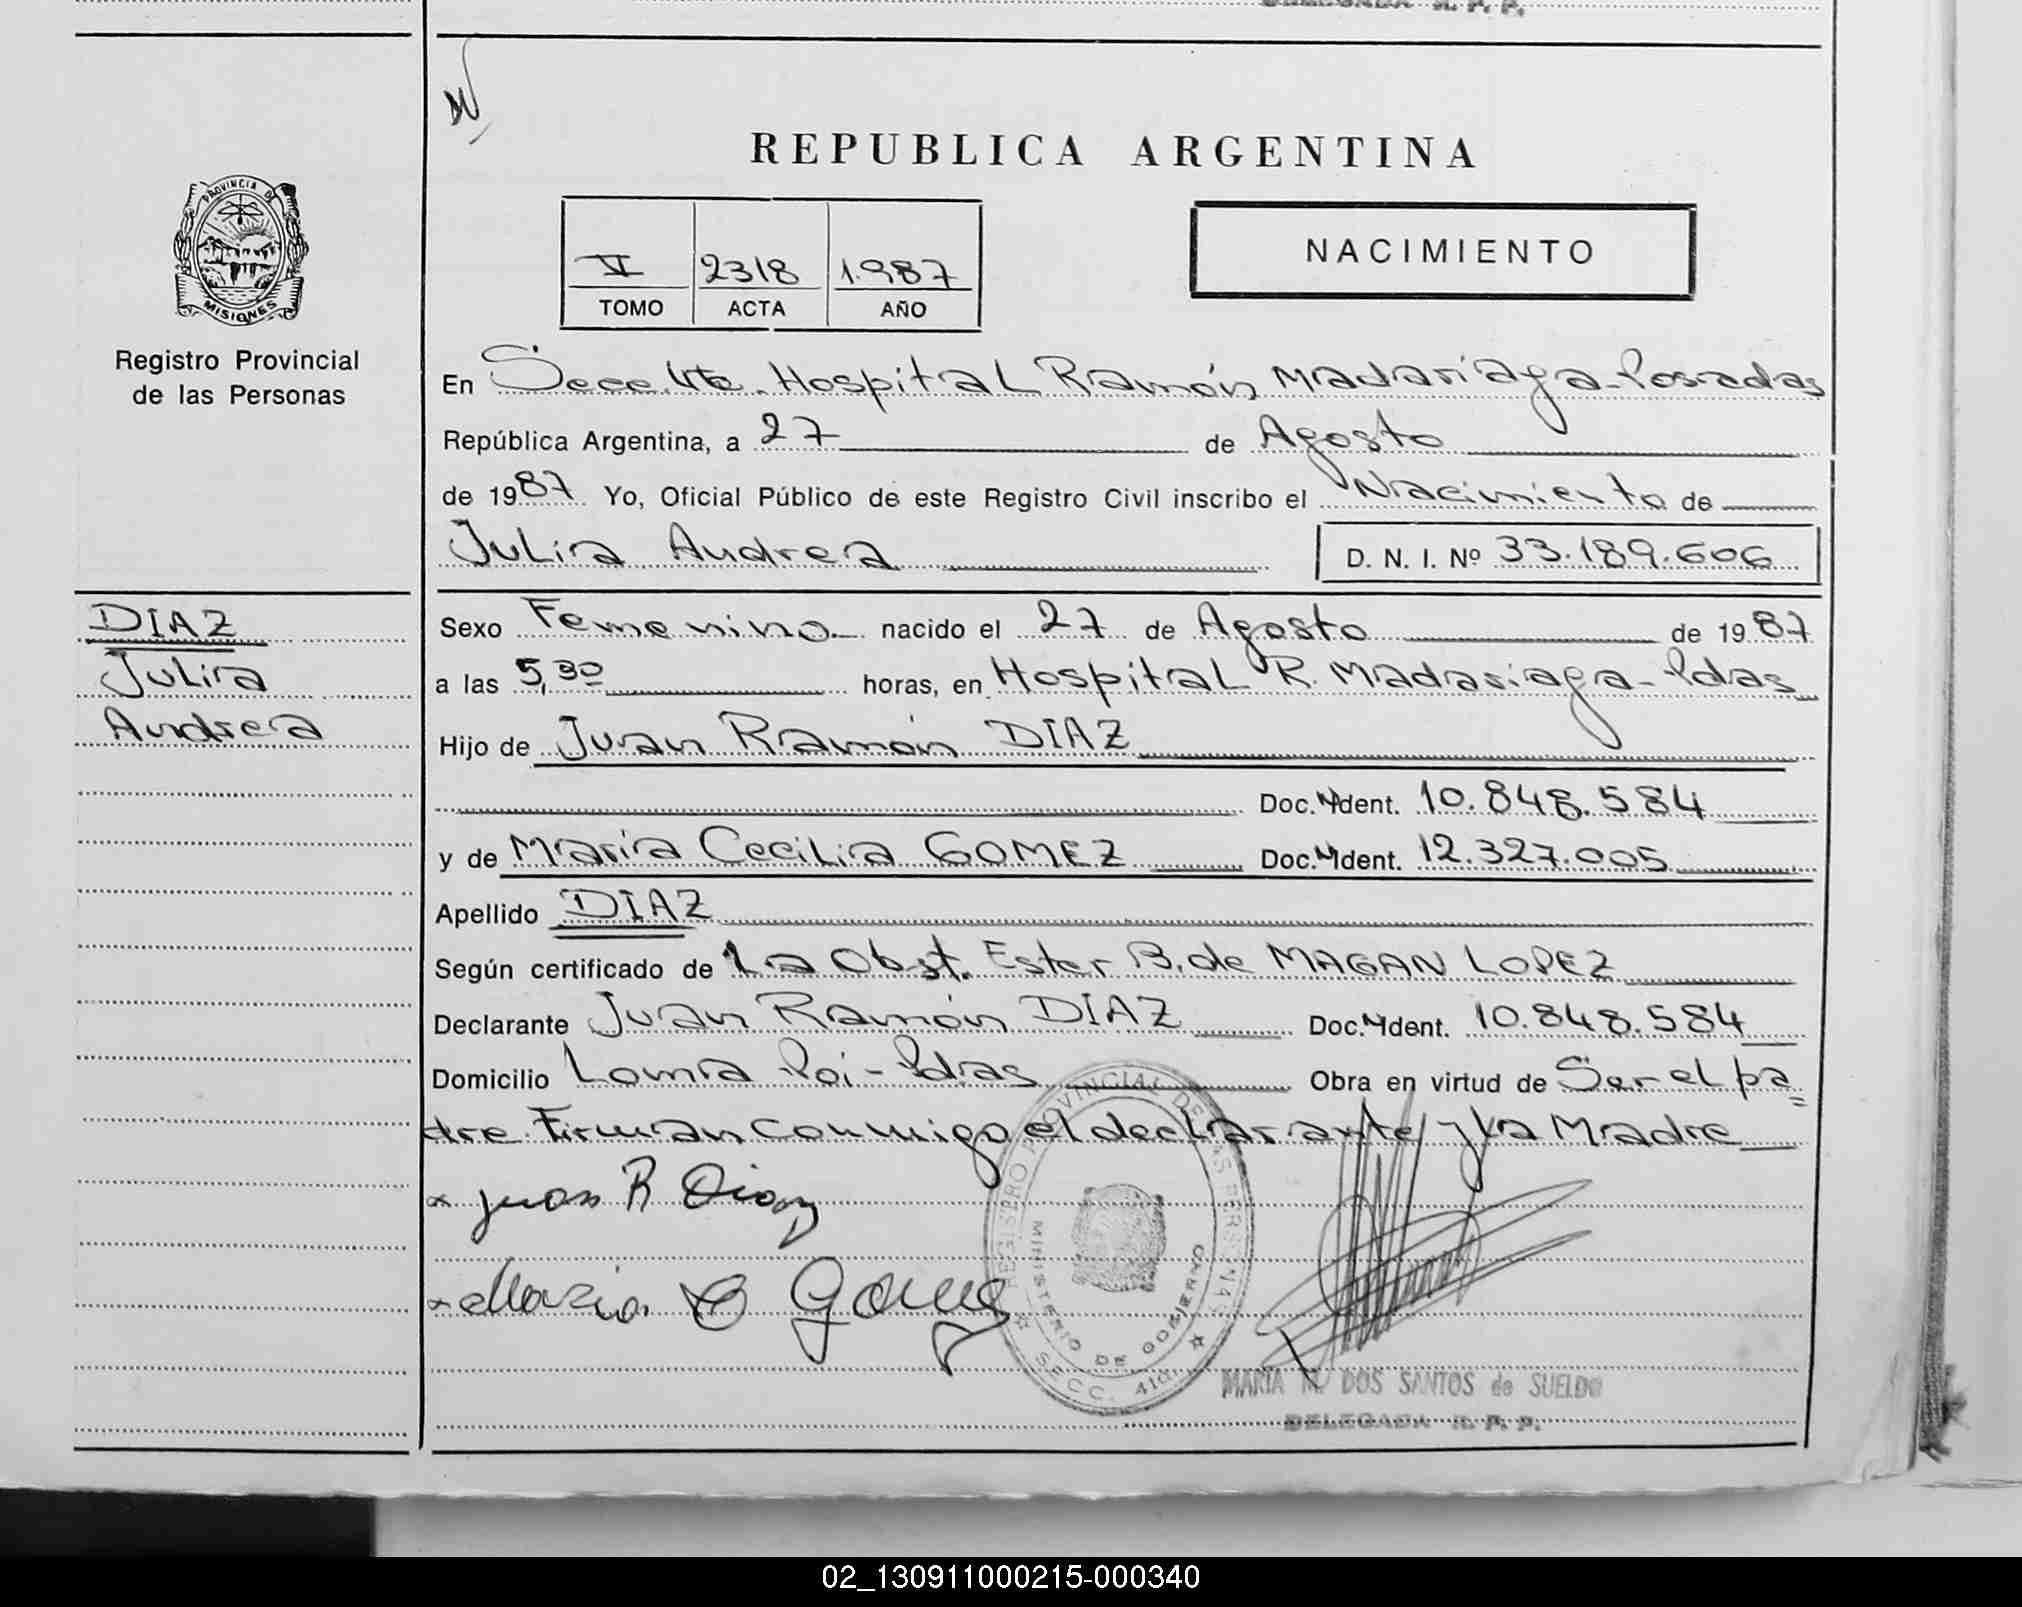 DELEGADA R. P. P.
REPUBLICA ARGENTINA
PROVINCIA DE
MISIONES
Registro Provincial
de las Personas
VI 2318 1.987
TOMO ACTA AÑO
NACIMIENTO
En Secc. 4ta. Hospital Ramón Madariaga - Posadas
República Argentina, a 27 de Agosto
de 1987 Yo, Oficial Público de este Registro Civil inscribo el Nacimiento de
Julia Andrea D. N. I. Nº 33.189.606
DIAZ
Julia
Andrea
Sexo Femenino nacido el 27 de Agosto de 1987
a las 5,30 horas, en Hospital R. Madariaga - Pdas
Hijo de Juan Ramón DIAZ
Doc. Ident. 10.848.584
y de Maria Cecilia GOMEZ Doc. Ident. 12.327.005
Apellido DIAZ
Según certificado de La Obst. Ester B. de MAGAN LOPEZ
Declarante Juan Ramón DIAZ Doc. Ident. 10.848.584
Domicilio Loma Poi - Pdas Obra en virtud de Ser el pa=
dre. Firman conmigo el declarante y la Madre
x Juan R Diaz
x Maria C Gomez
REGISTRO PROVINCIAL DE LAS PERSONAS
MINISTERIO DE GOBIERNO
SECC. 4ta.
MARIA M. DOS SANTOS de SUELDO
DELEGADA R. P. P.
02_130911000215-000340